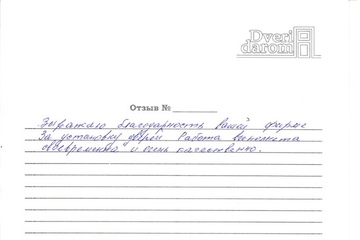 Dveri
darom
Отзыв № ________
Выражаю благодарность вашей фирме
За установку дверей Работа выполнена
своевременно и очень качественно.